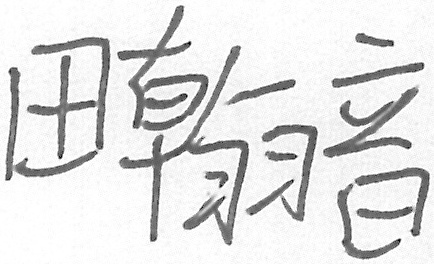 田翰音